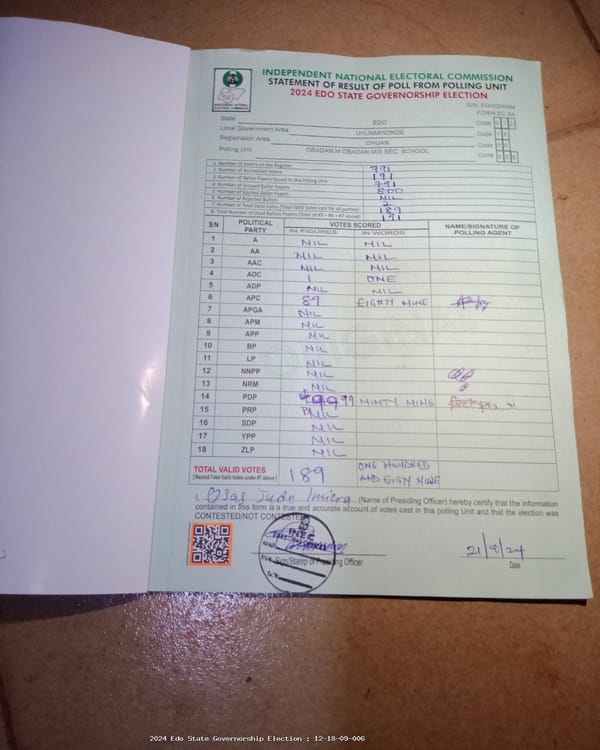 INDEPENDENT NATIONAL ELECTORAL COMMISSION
STATEMENT OF RESULT OF POLL FROM POLLING UNIT
2024 EDO STATE GOVERNORSHIP ELECTION
FORM EC 8A
State EDO Code
Local Government Area UHUNMWONDE Code
Registration Area OHUAN Code
Polling Unit OBADAN, M OBADAN MIX SEC. SCHOOL Code
1. Number of Voters on the Register 791
2. Number of Accredited Voters 191
3. Number of Ballot Papers Issued to the Polling Unit 791
4. Number of Unused Ballot Papers 600
5. Number of Spoiled Ballot Papers NIL
6. Number of Rejected Ballots 2
7. Number of Total Valid Votes (Total Valid Votes cast for all parties) 189
8. Total Number of Used Ballot Papers (Total of #5 + #6 + #7 above) 191
S/N POLITICAL PARTY VOTES SCORED NAME/SIGNATURE OF POLLING AGENT
IN FIGURES IN WORDS
1 A NIL NIL
2 AA NIL NIL
3 AAC NIL NIL
4 ADC 1 ONE
5 ADP NIL NIL
6 APC 89 EIGHTY NINE
7 APGA NIL
8 APM NIL
9 APP NIL
10 BP NIL
11 LP NIL
12 NNPP NIL
13 NRM NIL
14 PDP 99 NINTY NINE
15 PRP NIL
16 SDP NIL
17 YPP NIL
18 ZLP NIL
TOTAL VALID VOTES 189 ONE HUNDRED
(Record Total Valid Votes under #7 above) AND EIGTY NINE
I, Osas Jude (Name of Presiding Officer) hereby certify that the information
contained in this form is a true and accurate account of votes cast in this polling Unit and that the election was
CONTESTED/NOT CONTESTED
INEC
21/9/24
Sign/Stamp of Presiding Officer Date
2024 Edo State Governorship Election : 12-18-09-006